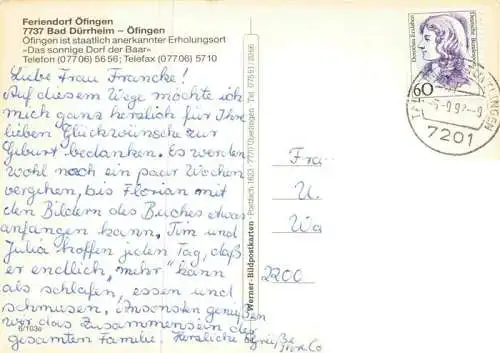 Feriendorf Öfingen
7737 Bad Dürrheim – Öfingen
Öfingen ist staatlich anerkannter Erholungsort
»Das sonnige Dorf der Baar«
Telefon (07706) 5656; Telefax (07706) 5710
Liebe Frau Francke!
Auf diesem Wege möchte ich
mich ganz herzlich für Ihre
lieben Glückwünsche zur
Geburt bedanken. Es werden
wohl noch ein paar Wochen
vergehen, bis Florian mit
den Bildern des Buches etwas
anfangen kann. Tim und
Julia hoffen jeden Tag, daß
er endlich "mehr" kann
als schlafen, essen und
schmusen. Ansonsten genießen
wir das Zusammensein der
gesamten Familie. Herzliche Grüße
6/103e
Werner-Bildpostkarten · Postfach 1623 · 7770 Überlingen · Tel. 07551/
Dorothea Erxleben
Deutsche Bundespost
60
7201
Fra
U.
Wa
2200